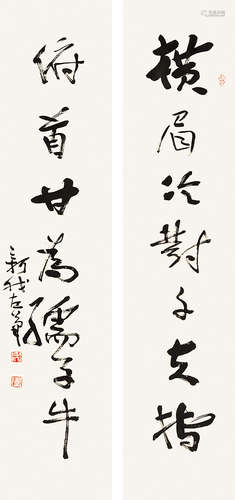 横眉冷對千夫指
俯首甘為孺子牛
新我左筆